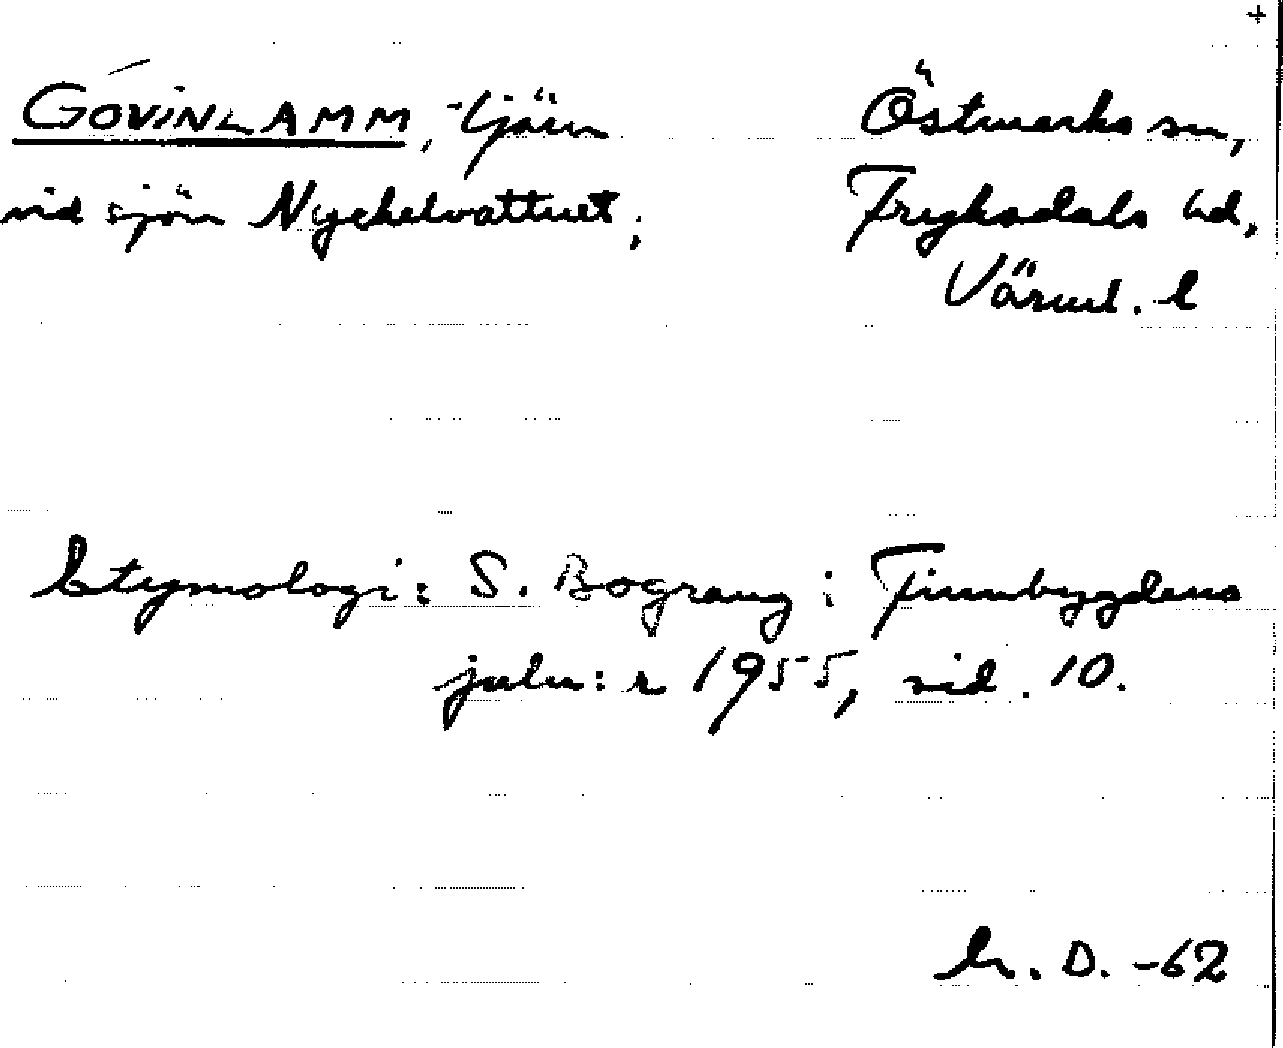 +
GÓVINLAMM, tjärn Östmarks sn,
vid sjön Nyckelvattnet; Fryksdals hd,
Värml. l
Etymologi: S. Bograng i Finnbygdens
juln:r 1955, sid. 10.
D. -62